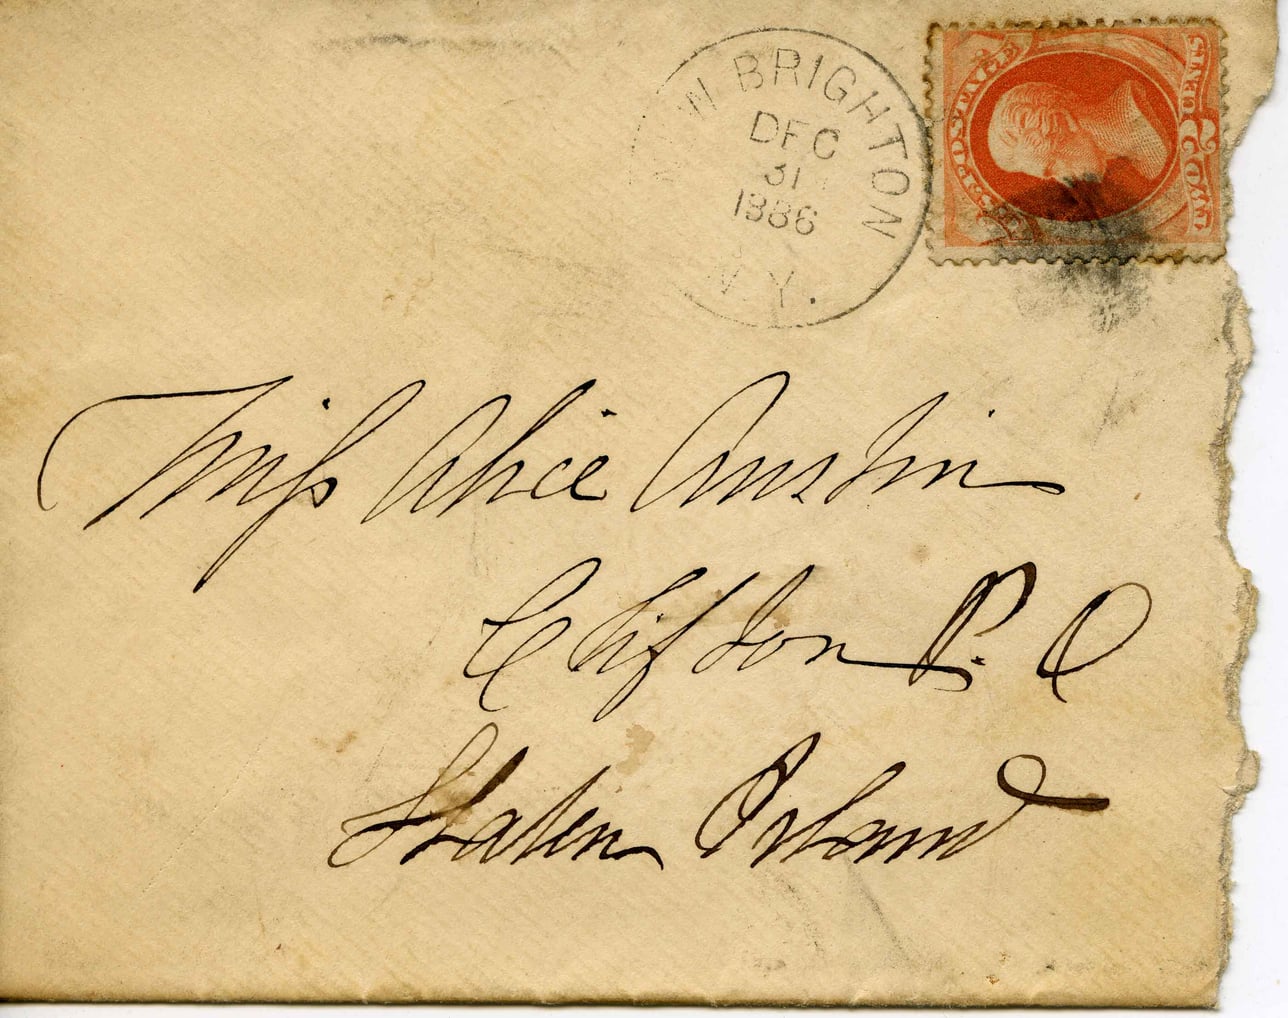 NEW BRIGHTON
DEC
31
1886
N.Y.
U.S. POSTAGE
TWO 2 CENTS
Miss Alice Austin
Clifton P. O
Staten Island